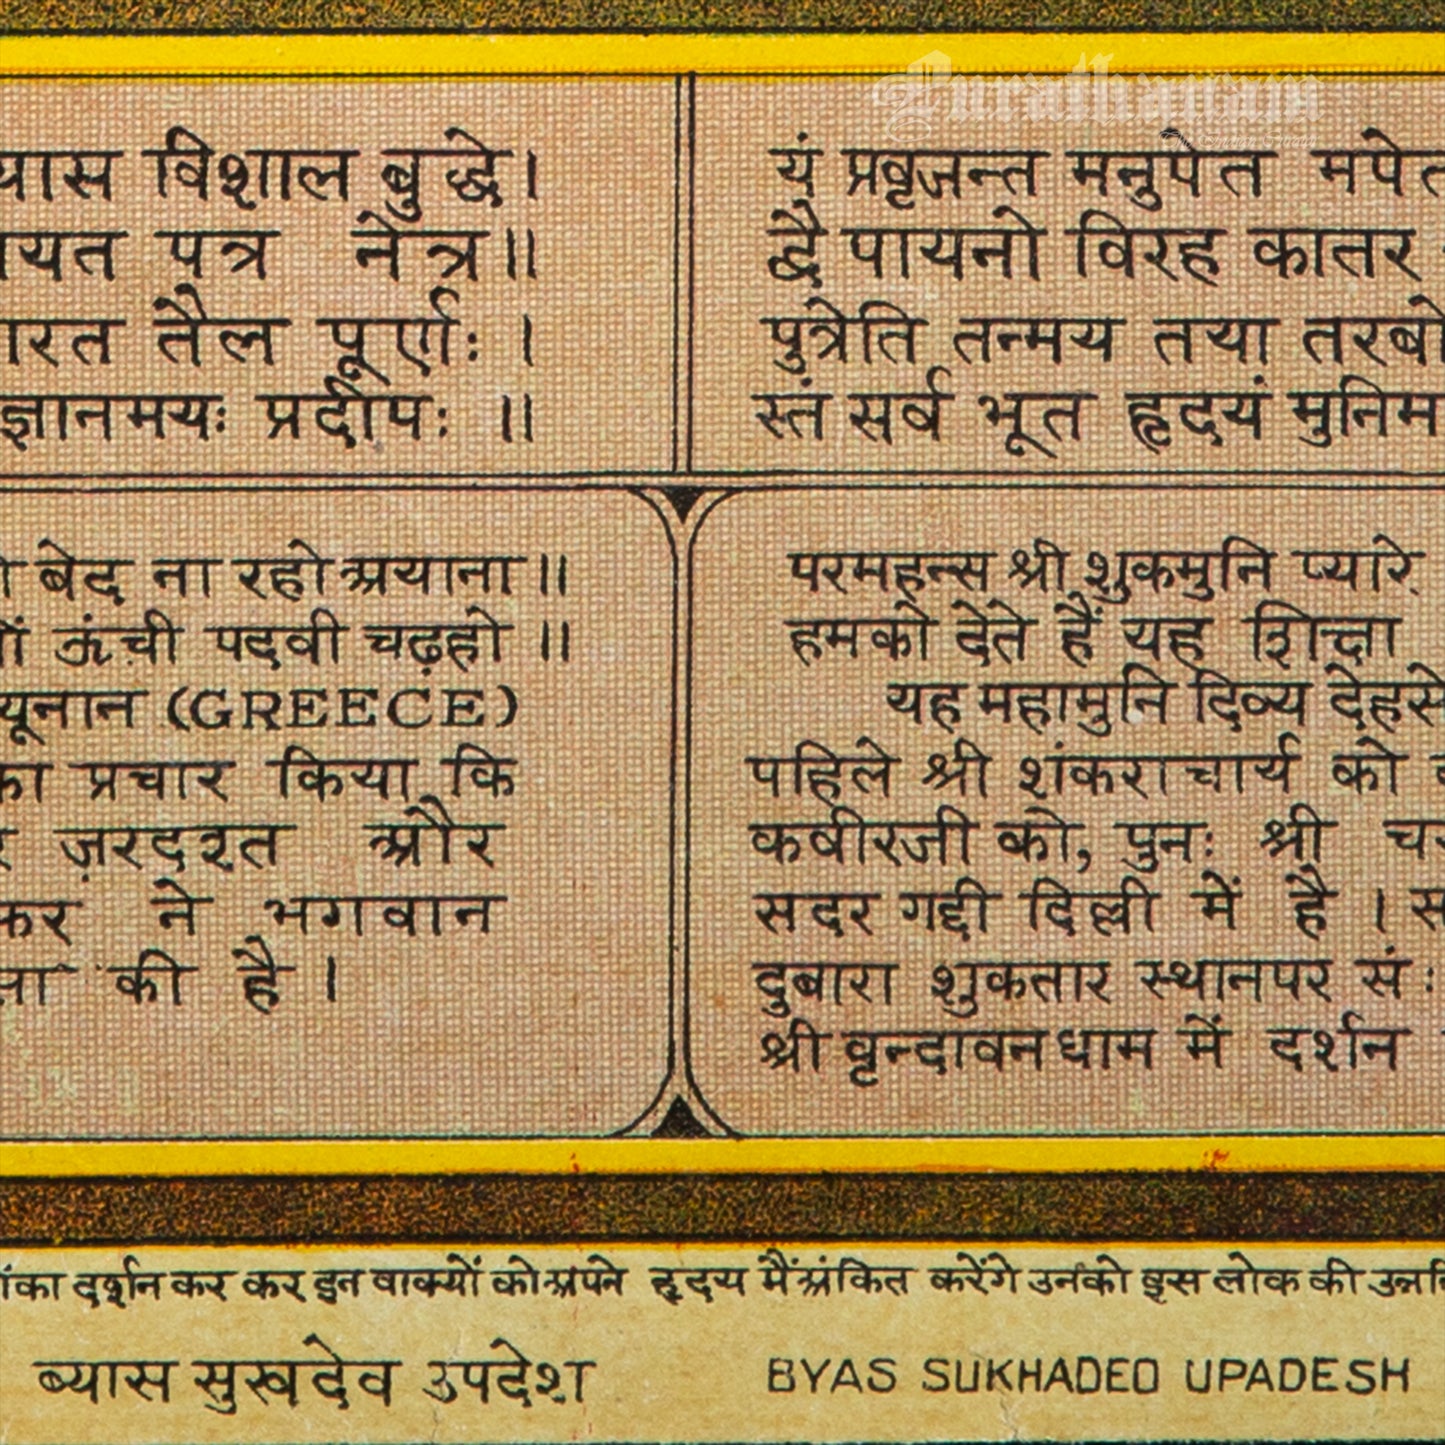 Purathanam
यास विशाल बुद्धे।
यत पत्र नेत्र॥
रत तैल पूर्णः ।
ज्ञानमयः प्रदीपः ॥
यं प्रवृजन्त मनुपेत मपेत
द्वै पायनो विरह कातर
पुत्रेति तन्मय तया तरबो
स्तं सर्व भूत हृदयं मुनिम
बेद ना रहो अयाना॥
ऊंची पदवी चढ़हो ॥
यूनान (GREECE)
का प्रचार किया कि
ज़रदश्त और
कर ने भगवान
की है ।
परमहन्स श्री शुकमुनि प्यारे
हमको देते हैं यह शिक्षा
यह महामुनि दिव्य देहसे
पहिले श्री शंकराचार्य को
कवीरजी को, पुनः श्री
सदर गद्दी दिल्ली में है ।
दुबारा शुकतार स्थानपर सं:
श्री वृन्दावनधाम में दर्शन
का दर्शन कर कर इन वाक्यों को अपने हृदय मैं अंकित करेंगे उनको इस लोक की
ब्यास सुखदेव उपदेश BYAS SUKHADEO UPADESH